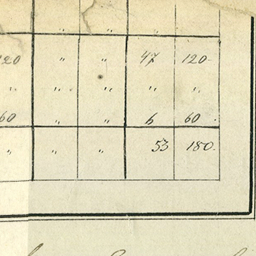 " " "
120 " " 47 120.
" " " " "
60 " " 6 60.
" " " 53 180.